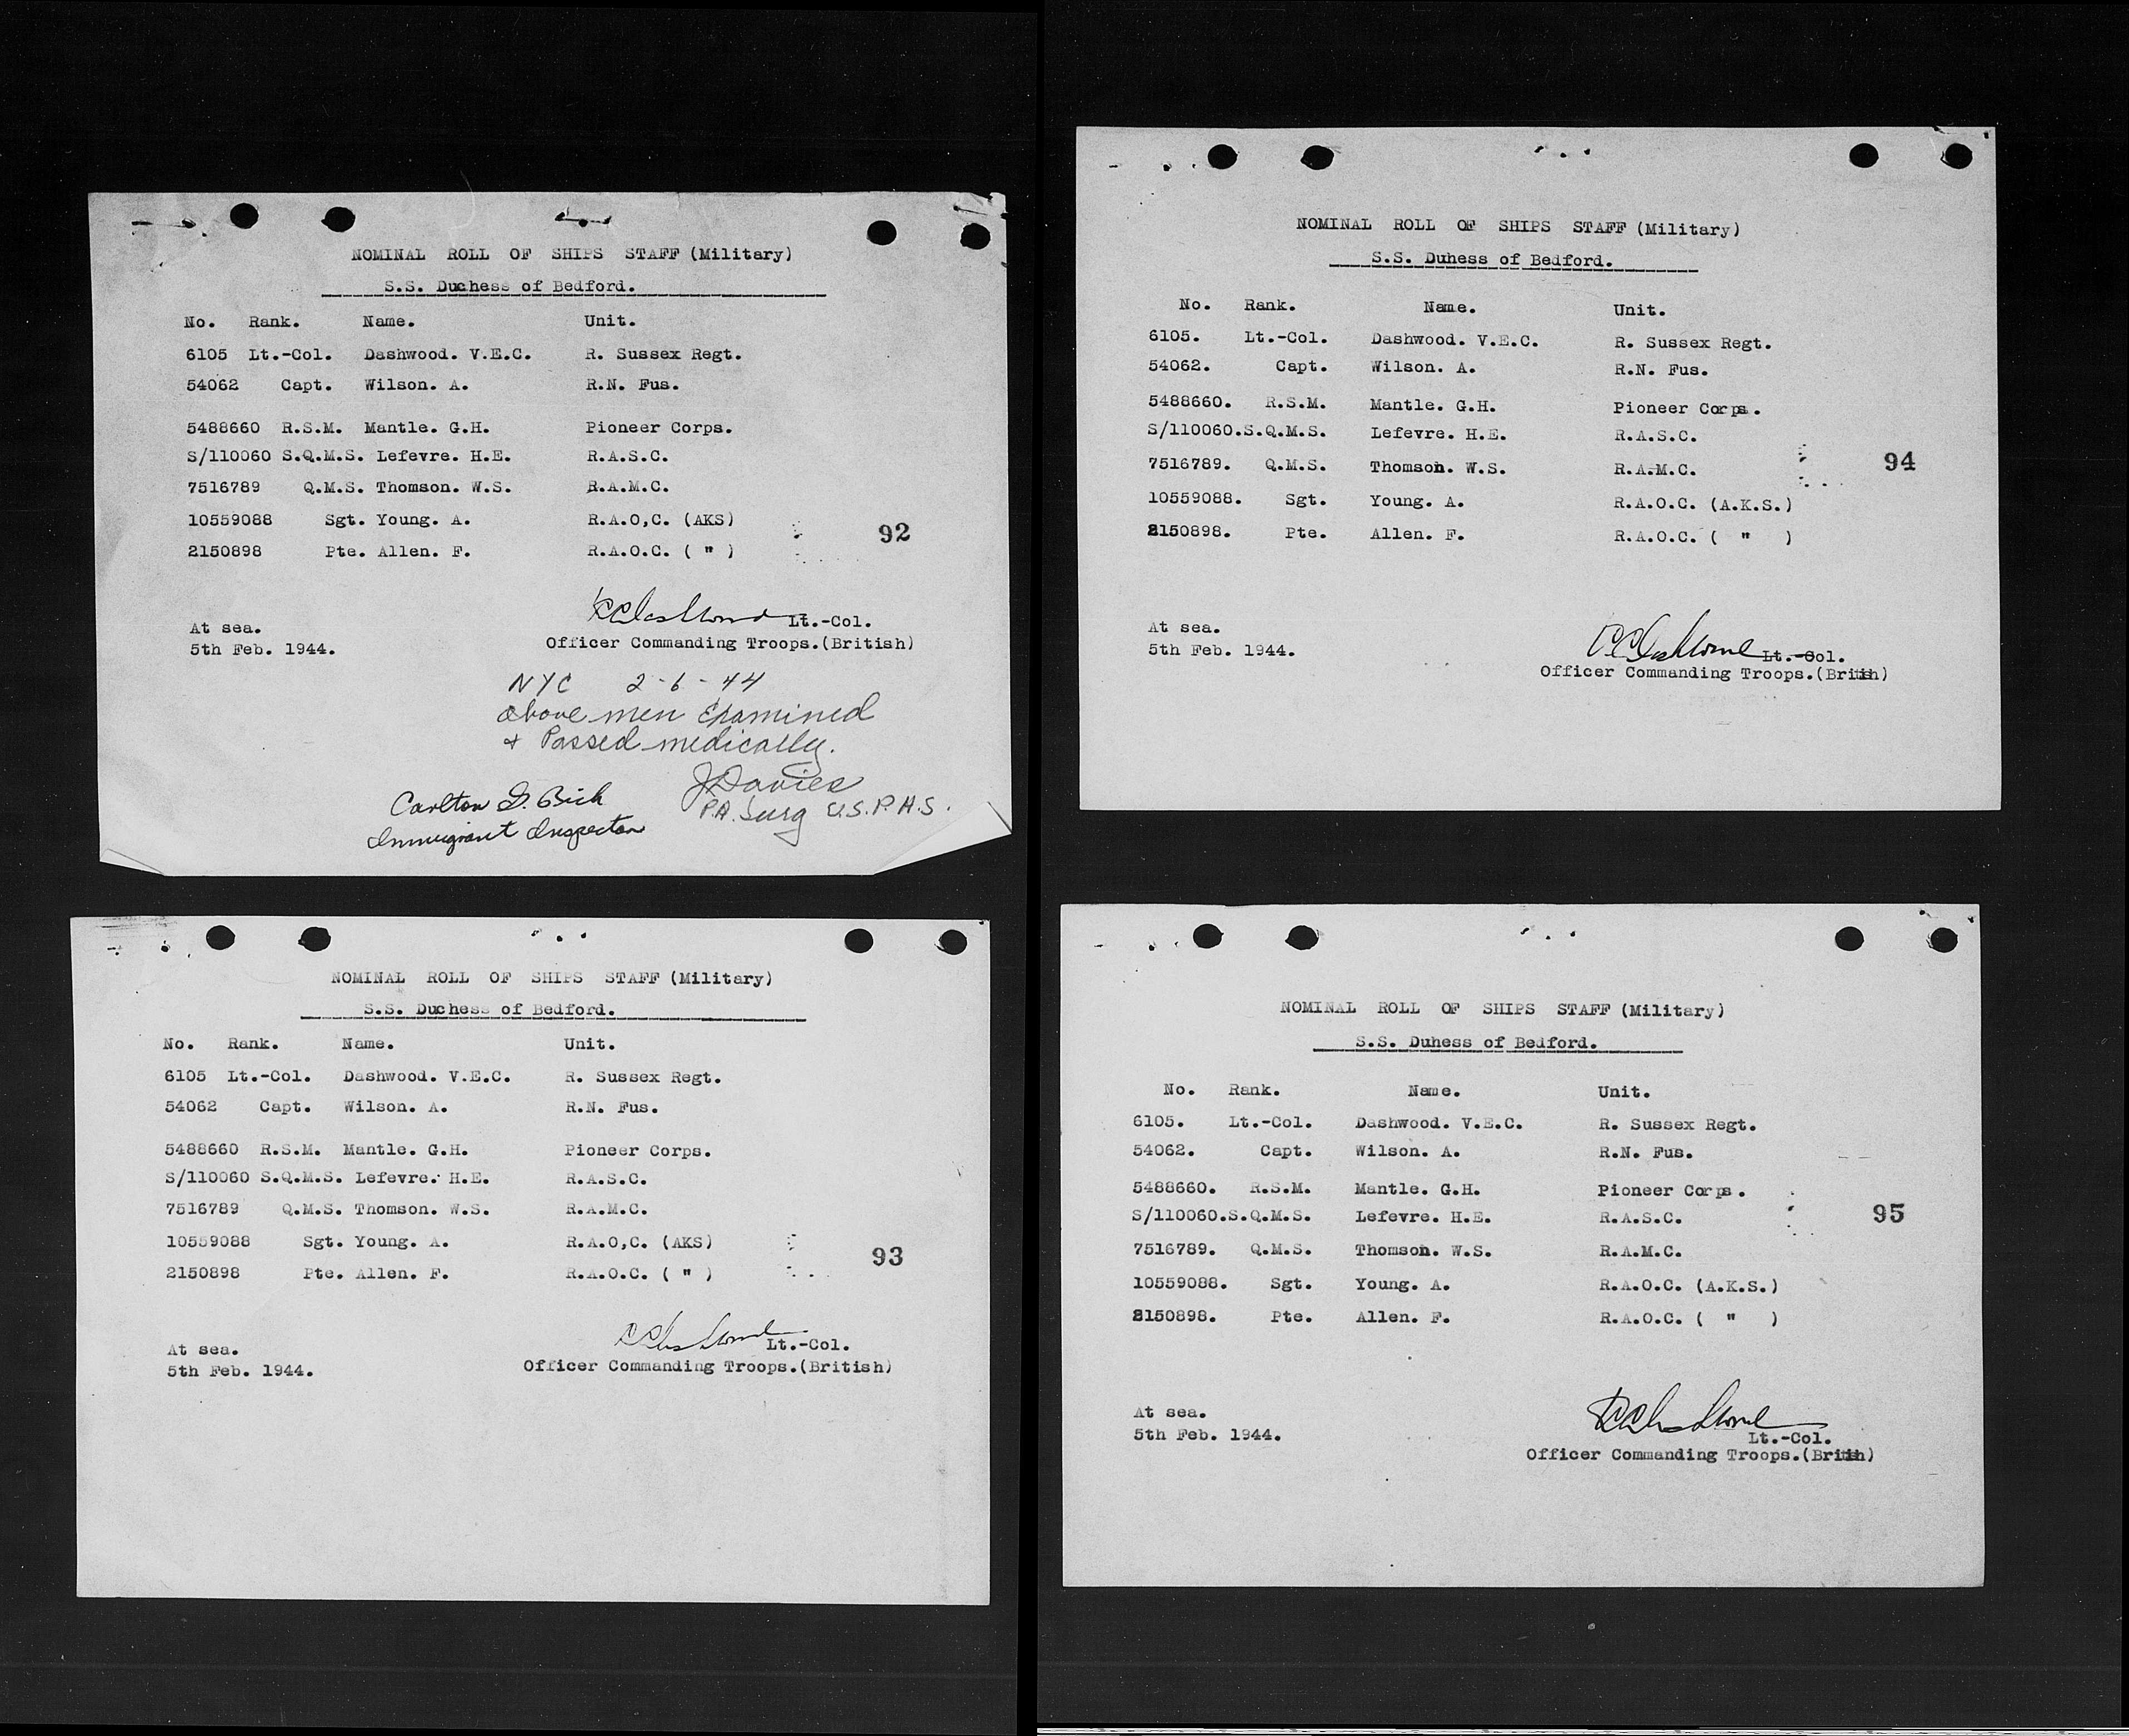 NOMINAL ROLL OF SHIPS STAFF (Military)
S.S. Duchess of Bedford.
No. Rank. Name. Unit.
6105 Lt.-Col. Dashwood. V.E.C. R. Sussex Regt.
54062 Capt. Wilson. A. R.N. Fus.
5488660 R.S.M. Mantle. G.H. Pioneer Corps.
S/110060 S.Q.M.S. Lefevre. H.E. R.A.S.C.
7516789 Q.M.S. Thomson. W.S. R.A.M.C.
10559088 Sgt. Young. A. R.A.O,C. (AKS)
92
2150898 Pte. Allen. F. R.A.O.C. ( " )
Lt.-Col.
At sea.
5th Feb. 1944.
Officer Commanding Troops.(British)
NYC 2-6-44
above men Examined
+ Passed medically.
J Davies
P.A. Surg U.S.P.H.S.
Carlton
Immigrant Inspector
NOMINAL ROLL OF SHIPS STAFF (Military)
S.S. Duchess of Bedford.
No. Rank. Name. Unit.
6105 Lt.-Col. Dashwood. V.E.C. R. Sussex Regt.
54062 Capt. Wilson. A. R.N. Fus.
5488660 R.S.M. Mantle. G.H. Pioneer Corps.
S/110060 S.Q.M.S. Lefevre. H.E. R.A.S.C.
7516789 Q.M.S. Thomson. W.S. R.A.M.C.
10559088 Sgt. Young. A. R.A.O,C. (AKS)
93
2150898 Pte. Allen. F. R.A.O.C. ( " )
Lt.-Col.
At sea.
5th Feb. 1944.
Officer Commanding Troops.(British)
NOMINAL ROLL OF SHIPS STAFF (Military)
S.S. Duhess of Bedford.
No. Rank. Name. Unit.
6105. Lt.-Col. Dashwood. V.E.C. R. Sussex Regt.
54062. Capt. Wilson. A. R.N. Fus.
5488660. R.S.M. Mantle. G.H. Pioneer Corps.
S/110060.S.Q.M.S. Lefevre. H.E. R.A.S.C.
94
7516789. Q.M.S. Thomson. W.S. R.A.M.C.
10559088. Sgt. Young. A. R.A.O.C. (A.K.S.)
2150898. Pte. Allen. F. R.A.O.C. ( " )
At sea.
5th Feb. 1944.
Lt.-Col.
Officer Commanding Troops.(British)
NOMINAL ROLL OF SHIPS STAFF (Military)
S.S. Duhess of Bedford.
No. Rank. Name. Unit.
6105. Lt.-Col. Dashwood. V.E.C. R. Sussex Regt.
54062. Capt. Wilson. A. R.N. Fus.
5488660. R.S.M. Mantle. G.H. Pioneer Corps.
S/110060.S.Q.M.S. Lefevre. H.E. R.A.S.C.
95
7516789. Q.M.S. Thomson. W.S. R.A.M.C.
10559088. Sgt. Young. A. R.A.O.C. (A.K.S.)
2150898. Pte. Allen. F. R.A.O.C. ( " )
At sea.
5th Feb. 1944.
Lt.-Col.
Officer Commanding Troops.(British)